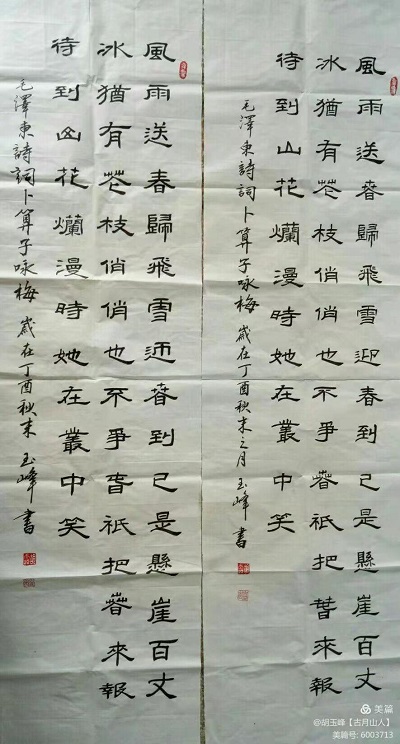 風雨送春歸飛雪迎春到已是懸崖百丈
冰猶有花枝俏俏也不爭春祇把春來報
待到山花爛漫時她在叢中笑
毛澤東詩詞卜算子咏梅 歲在丁酉秋末之月 玉峰書
風雨送春歸飛雪迎春到已是懸崖百丈
冰猶有花枝俏俏也不爭春祇把春來報
待到山花爛漫時她在叢中笑
毛澤東詩詞卜算子咏梅 歲在丁酉秋末 玉峰書
美篇
@胡玉峰【古月山人】
美篇号: 6003713